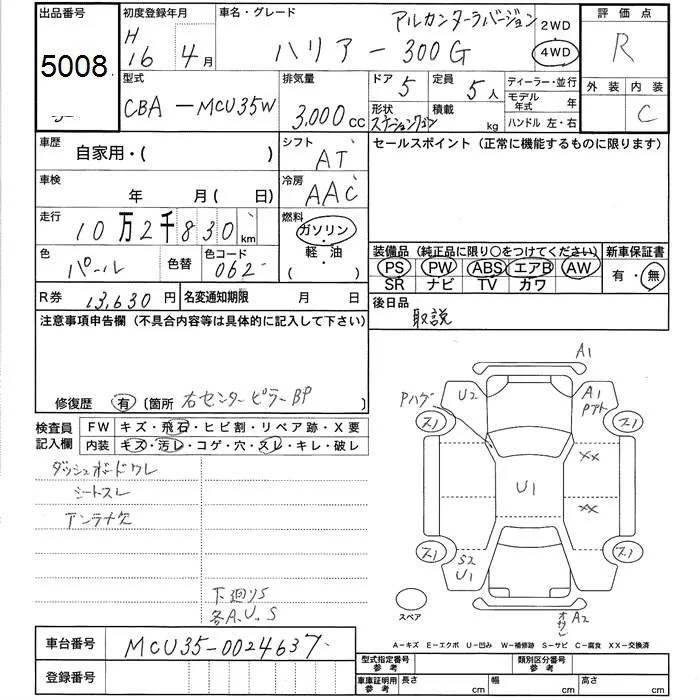 出品番号 初度登録年月 車名・グレード 評価点
アルカンターラバージョン 2WD
5008 H 16年 4月 ハリアー 300G 4WD R
型式 排気量 ドア 定員 ディーラー・並行 外装 内装
CBA-MCU35W 3,000cc 5 5人 モデル年式 年 C
形状 積載 ハンドル 左・右
ステーションワゴン kg
車歴 自家用・( ) シフト AT セールスポイント (正規に機能するものに限ります)
車検 年 月( 日) 冷房 AAC
走行 10万2千830km 燃料 ガソリン・軽油
( )
色 パール 色替 色コード 062
装備品(純正品に限り○をつけてください) 新車保証書
PS PW ABS エアB AW 有・無
SR ナビ TV カワ
R券 13,630円 名変通知期限 月 日 後日品
取説
注意事項申告欄(不具合内容等は具体的に記入して下さい)
修復歴 有 〔箇所 右センターピラーBP 〕
検査員記入欄 FW キズ・飛石・ヒビ割・リペア跡・X要
内装 キズ・汚レ・コゲ・穴・スレ・キレ・破レ
ダッシュボードワレ
シートスレ
アンテナ欠
下廻りS
各A.U.S
A1
U2 A1
Pハゲ Pアト
ス1 ス1
XX
U1
XX
ス1 ス1
S2
U1
スペア A2
A-キズ E-エクボ U-凹み W-補修跡 S-サビ C-腐食 XX-交換済
車台番号 MCU35-0024637
登録番号
型式指定番号 参考 類別区分番号 参考
車庫証明用 参考 長さ cm 幅 cm 高さ cm